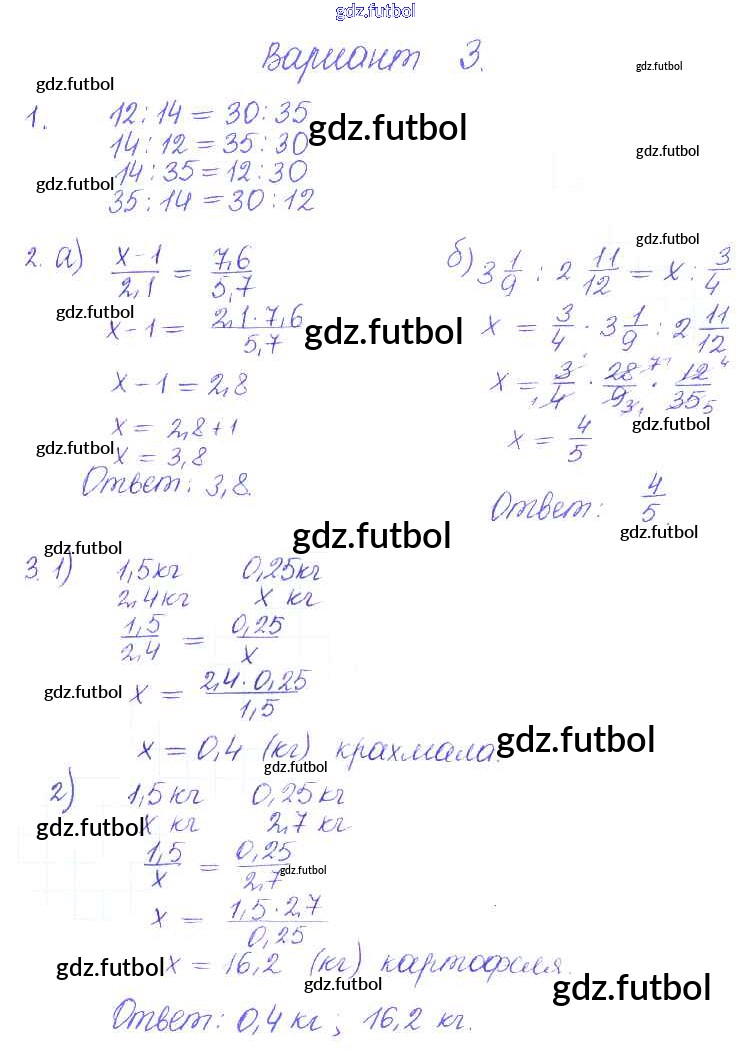 gdz.futbol
Вариант 3.
gdz.futbol
gdz.futbol
1. 12 : 14 = 30 : 35
gdz.futbol
14 : 12 = 35 : 30
gdz.futbol
14 : 35 = 12 : 30
gdz.futbol
35 : 14 = 30 : 12
gdz.futbol
2. а) (x-1)/2,1 = 7,6/5,7
б) 3 1/9 : 2 11/12 = x : 3/4
gdz.futbol
x-1 = (2,1·7,6)/5,7
gdz.futbol
x = 3/4 · 3 1/9 : 2 11/12
x-1 = 2,8
x = 3/4 · 28/9 · 12/35
1 7 4 3 1 5
x = 2,8+1
gdz.futbol
x = 4/5
gdz.futbol
x = 3,8
Ответ: 3,8.
Ответ: 4/5.
gdz.futbol
gdz.futbol
gdz.futbol
3. 1) 1,5 кг 0,25 кг
2,4 кг x кг
1,5/2,4 = 0,25/x
gdz.futbol
x = (2,4·0,25)/1,5
x = 0,4 (кг) крахмала.
gdz.futbol
gdz.futbol
2) 1,5 кг 0,25 кг
gdz.futbol
x кг 2,7 кг
1,5/x = 0,25/2,7
gdz.futbol
x = (1,5·2,7)/0,25
gdz.futbol
x = 16,2 (кг) картофеля.
gdz.futbol
gdz.futbol
Ответ: 0,4 кг; 16,2 кг.